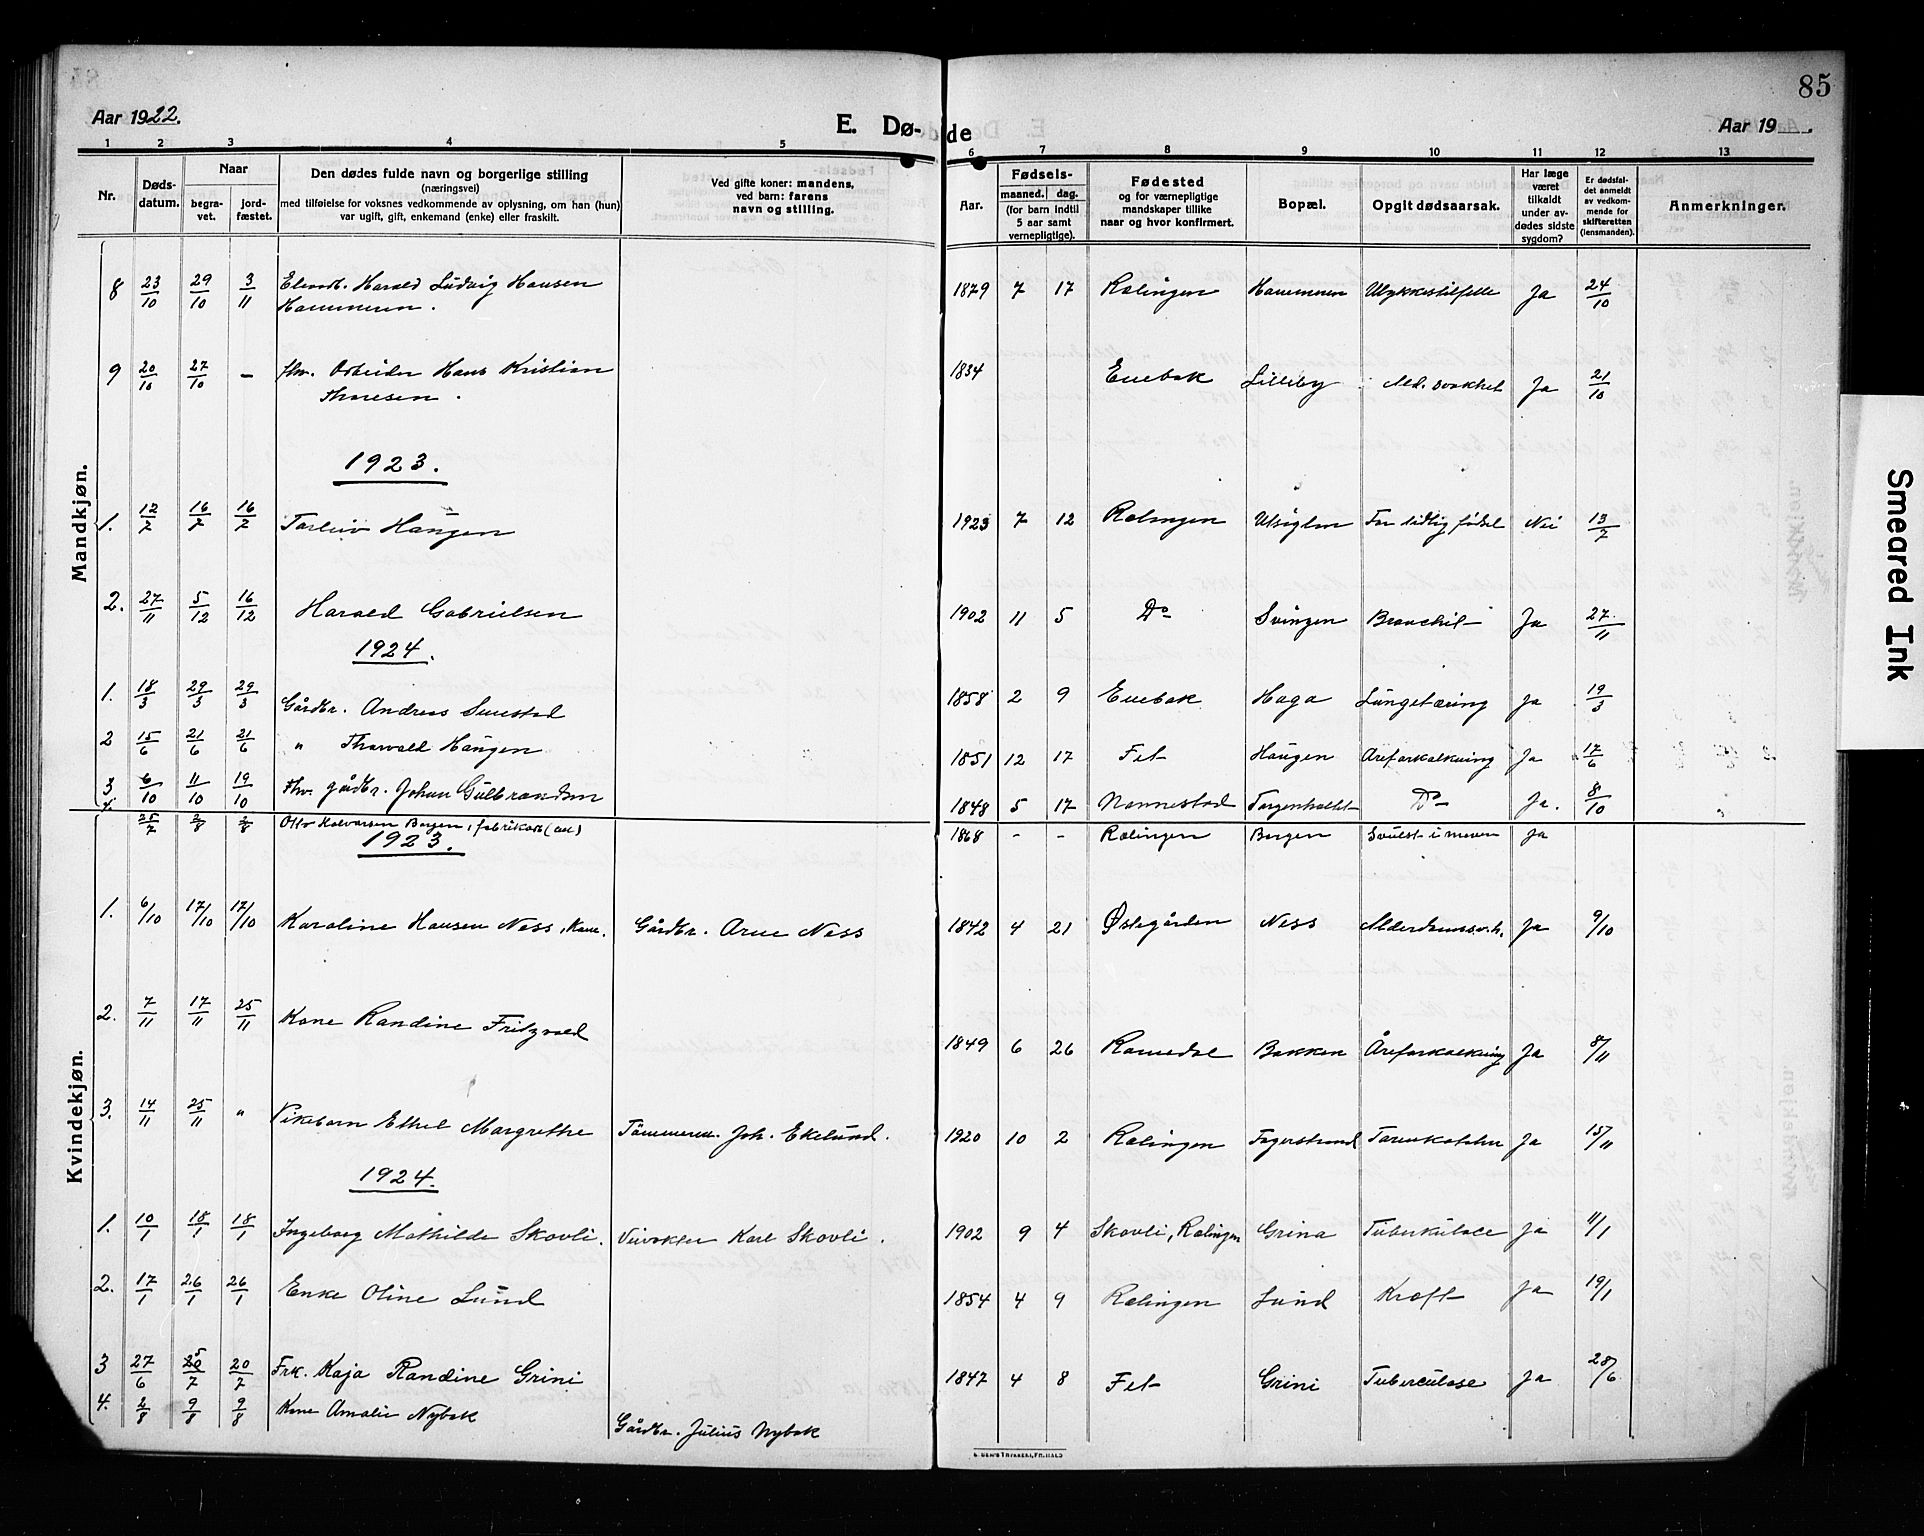 85
Aar 1922.
E. Dø-
de
Aar 19 .
1 2 3 4 5 6 7 8 9 10 11 12 13
Nr.
Døds-
datum.
Naar
begra-
vet.
jord-
fæstet.
Den dødes fulde navn og borgerlige stilling
(næringsvei)
med tilføielse for voksnes vedkommende av oplysning, om han (hun)
var ugift, gift, enkemand (enke) eller fraskilt.
Ved gifte koner: mandens,
ved barn: farens
navn og stilling.
Aar.
Fødsels-
maaned. dag.
(for barn indtil
5 aar samt
vernepligtige).
Fødested
og for værnepligtige
mandskaper tillike
naar og hvor konfirmert.
Bopæl.
Opgit dødsaarsak.
Har læge
været
tilkaldt
under av-
dødes sidste
sygdom?
Er dødsfal-
det anmeldt
av vedkom-
mende for
skifteretten
(lensmanden).
Anmerkninger.
Mandkjøn.
8 23/10 29/10 3/11 Harald Ludvig Hansen 1879 7 17 Rælingen Hammeren Ulykkestilfelle Ja 24/10
Hammeren.
9 20/10 27/10 – fhv. Arbeider Hans Kristian 1834 Enebak Lilleby Ald. svakhet Ja 21/10
Thoresen.
1923.
1. 12/7 16/7 16/7 Torleiv Haugen 1923 7 12 Rælingen For tidlig fødsel Nei 13/7
2. 27/11 5/12 16/12 Harald Gabrielsen 1902 11 5 Do Svingen Ja 27/11
1924.
1. 18/3 29/3 29/3 Gårdbr. Andreas 1858 2 9 Enebak Haga Lungetæring Ja 19/3
2 15/6 21/6 21/6 " Thorvald Haugen 1851 12 17 Fet Haugen Areforkalkning Ja 17/6
3 6/10 11/10 19/10 Fhv. gårdbr. Johan Gulbrandsen 1848 5 17 Nannestad Do Ja. 8/10
4. 25/7 2/8 2/8 Otto Halvorsen Borgen, fabrikarb. 1868 - - Rælingen Borgen Svulst i maven Ja
Kvindekjøn.
1923.
1. 6/10 17/10 17/10 Karoline Hansen Ness, Kone. Gårdbr. Arne Ness 1842 4 21 Østegården Ness Alderdomssvh. Ja 9/10
2. 7/11 17/11 25/11 Kone Randine Fritzvold 1849 6 26 Romedal Bakken Åreforkalkning Ja 8/11
3. 14/11 25/11 " Pikebarn Ethel Margrethe Tømmerm. Joh. Ekelund. 1920 10 2 Rælingen Fagerstrand Tarmkatarr Ja 15/11
1924.
1. 10/1 18/1 18/1 Ingeborg Mathilde Skovli. Veivokter Karl Skovli. 1902 9 4 Skovli, Rælingen Grina Tuberkulose Ja 11/1
2. 17/1 26/1 26/1 Enke Oline Lund 1854 4 9 Rælingen Lund Kræft Ja 19/1
3 27/6 5/7 20/7 Frk. Kaja Randine Grini 1847 4 8 Fet Grini Tuberculose Ja 28/6
4. 2/8 9/8 9/8 Kone Amalie Nybak Gårdbr. Julius Nybak
Smeared Ink